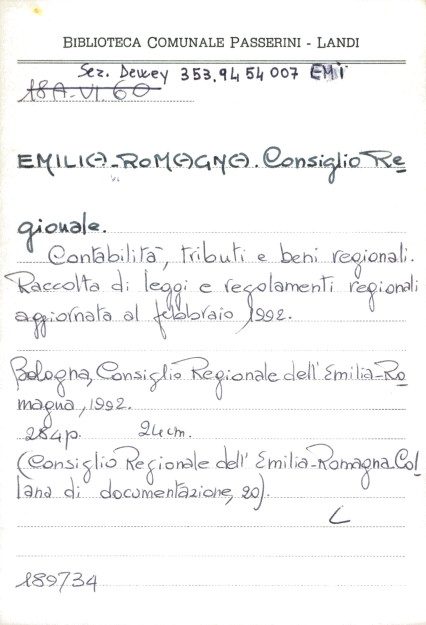 BIBLIOTECA COMUNALE PASSERINI - LANDI
Sez. Dewey 353.9454007 EMI
18A-VI.60
EMILIA-ROMAGNA. Consiglio Re
gionale.
Contabilità, tributi e beni regionali.
Raccolta di leggi e regolamenti regionali
aggiornata al febbraio 1992.
Bologna, Consiglio Regionale dell'Emilia-Ro
magna, 1992.
284p. 24cm.
(Consiglio Regionale dell'Emilia-Romagna. Col
lana di documentazione, 20).
L
189734